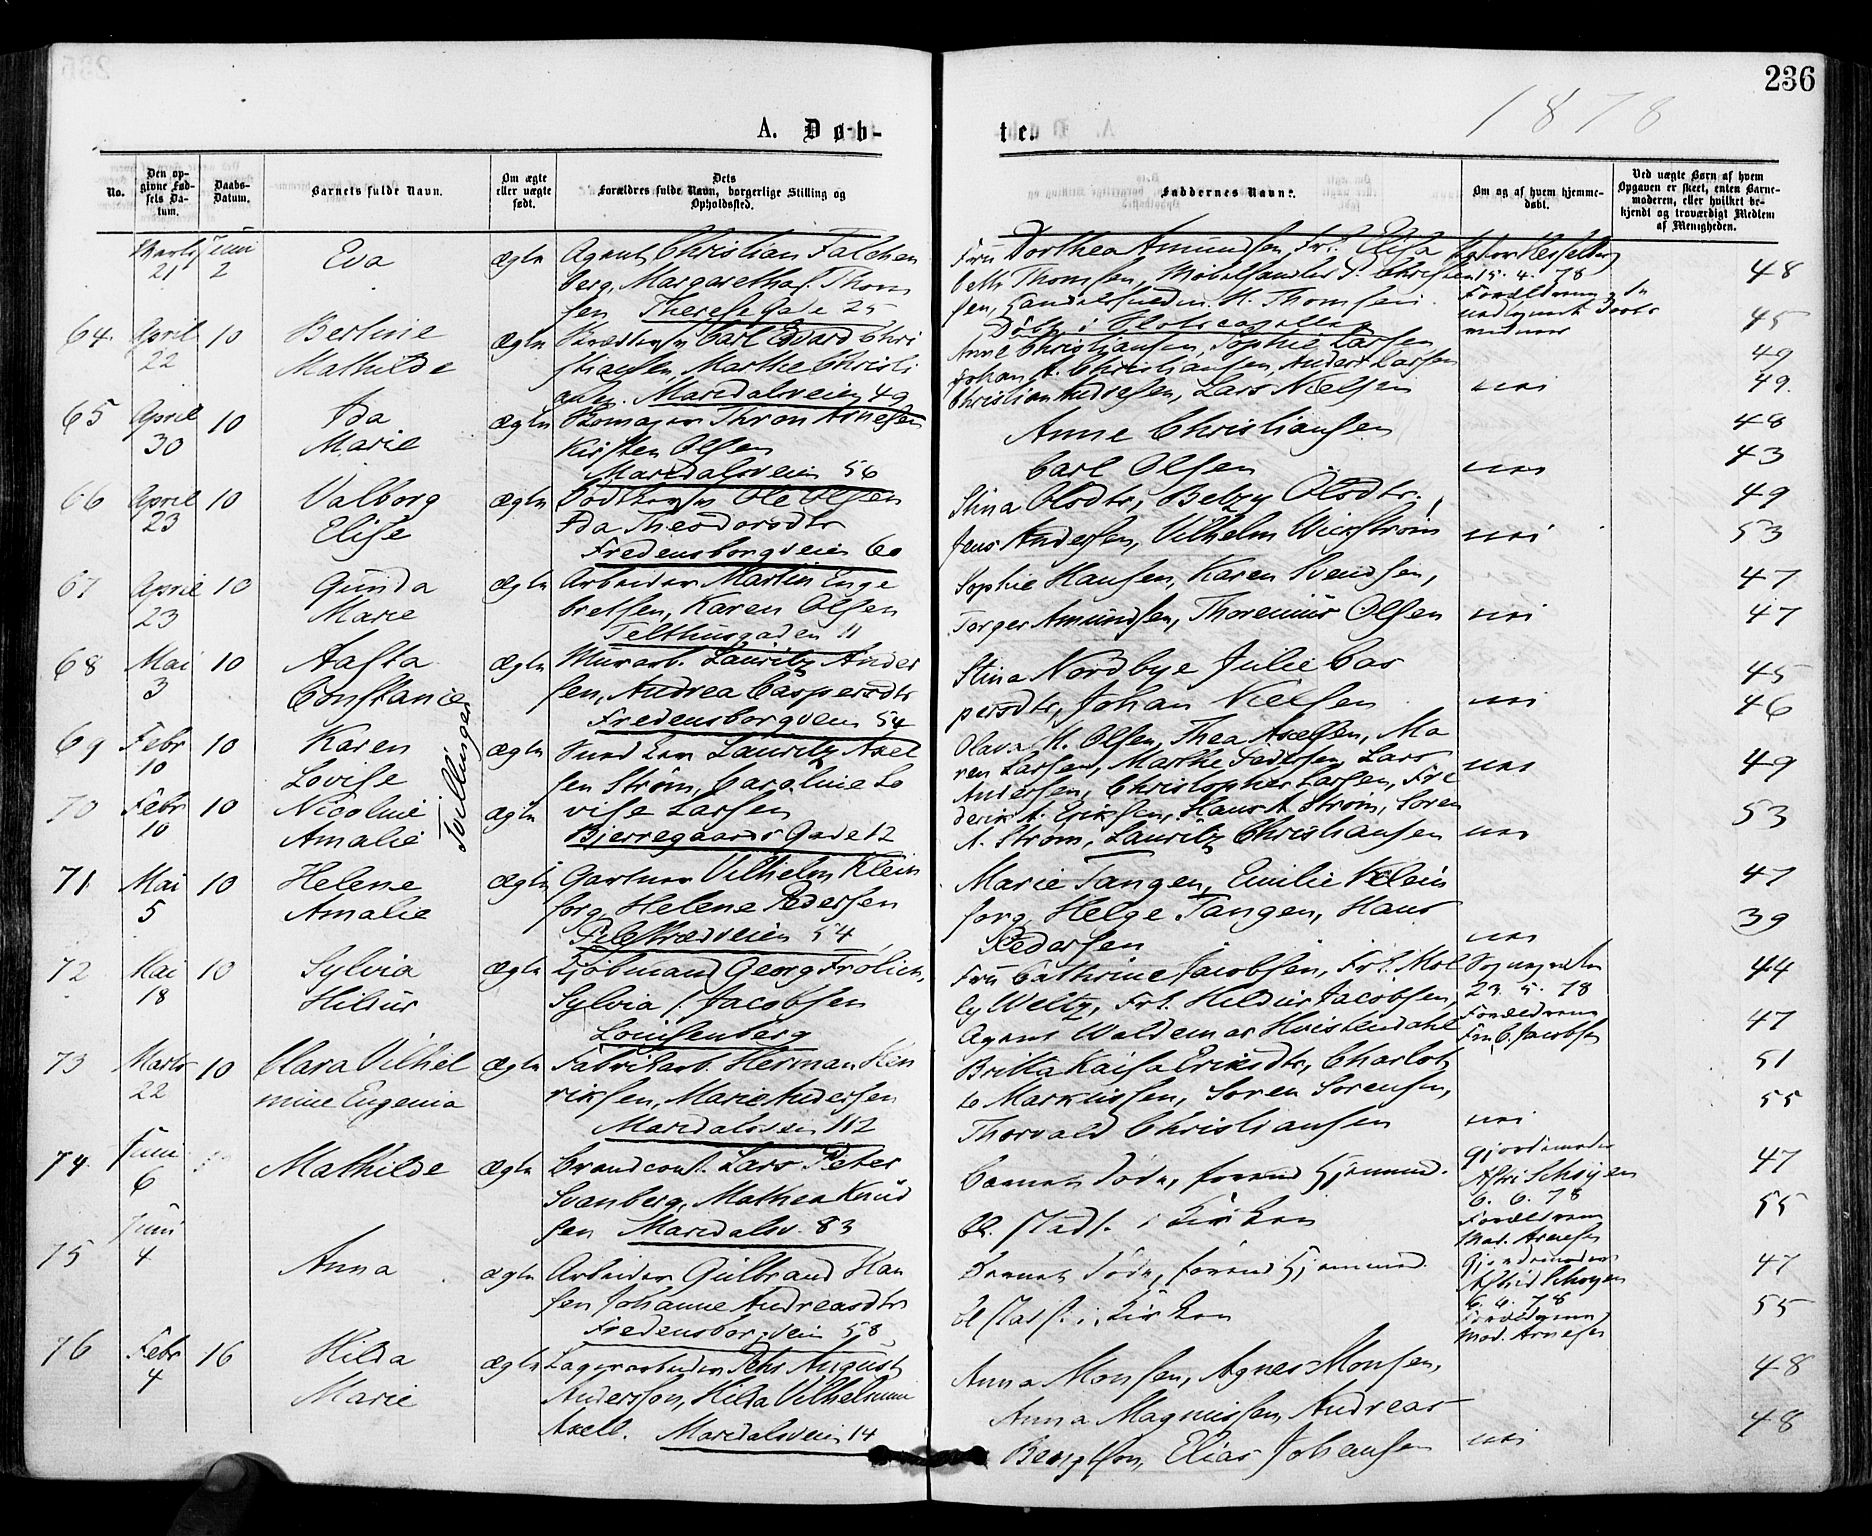 236
1878
A. Døb-
te.
No.
Den op-
givne Fød-
sels Da-
tum.
Daabs-
Datum.
Barnets fulde Navn.
Om ægte
eller uægte
født.
Dets
Forældres fulde Navn, borgerlige Stilling og
Opholdssted.
Faddernes Navne.
Om og af hvem hjemme-
døbt.
Ved uægte Børn af hvem
Opgaven er skeet, enten Barne-
moderen, eller hvilket be-
kjendt og troværdigt Medlem
af Menigheden.
Marts 21
Juni 2
Eva
ægte
Agent Christian Falchen
berg, Margaretha f. Thom
sen Therese Gade 25
Fru Dorthea Amundsen, Frk. Elisa
beth Thomsen, Møbelhandler P. Christen
sen, Handelsfuldm. H. Thomsen.
Døbt i Slotscapellet
Pastor Hesselberg
15. 4. 78
Forældrene
48
45
64.
April 22
10
Berline
Mathilde
ægte
Carl Edvard Chri
stiansen, Marthe Christi
ansen. Maridalsveien 49
Anne Christiansen, Sophie Larsen
Johan A. Christiansen, Anders Larsen
Christian Andresen, Lars Nielsen
nei
49
49.
65
April 30
10
Ida
Marie
ægte
Skomager Thron Arnesen
Kirsten Olsen
Maridalsveien 56
Anne Christiansen
Carl Olsen
nei
48
43
66
April 23
10
Valborg
Elise
ægte
Ole Olsen
Ida Theodorsdtr
Fredensborgveien 60
Stina Olsdtr, Betzy Olsdtr,
Jens Andersen, Vilhelm Wickstrøm
nei
49
53
67
April 23
10
Gunda
Marie
ægte
Arbeider Martin Enge
bretsen, Karen Olsen
Telthusgaden 11
Sophie Hansen, Karen Svendsen,
Torger Amundsen, Thorenius Olsen
nei
47
47
68
Mai 3
10
Aasta
Constance
ægte
Murarb. Lauritz Ander
sen, Andrea Caspersdtr
Fredensborgveien 54
Stina Nordbye Julie Cas
persdtr, Johan Nielsen
nei
45
46
69
Febr 10
10
Karen
Lovise
Tvillinger
ægte
Lauritz Axel
sen Strøm, Caroline Lo
Olava M. Olsen, Thea Axelsen, Ma
ren Larsen, Marthe Pedersen, Lars
Andersen, Christopher Larsen, Fre
nei
49
70
Febr 10
10
Nicoline
Amalie
ægte
vise Larsen
Bjerregaards Gade 12
derik A. Eriksen, Hans A. Strøm, Søren
A. Strøm, Lauritz Christiansen
nei
53
71.
Mai 5
10
Helene
Amalie
ægte
Gartner Vilhelm Klein
sorg, Helene Pedersen
Pilestrædveien 54
Marie Tangen, Emilie Klein
sorg, Helge Tangen, Hans
Pedersen
nei
47
39
72
Mai 18
10
Sylvia
Hildur
ægte
Kjøbmand Georg Frølich,
Sylvia f. Jacobsen
Louisenberg
Fru Cathrine Jacobsen, Frk. Mol
ly Weltz, Frk. Hildur Jacobsen,
Agent Waldemar Hvistendahl
Sognepresten
23. 5. 78
Forældrene
Fru C. Jacobsen
44
47
73
Marts 22
10
Clara Vilhel
mine Eugenia
ægte
Fabrikarb. Herman Hen
riksen, Marie Andersen
Maridalsveien 112
Britta Kaisa Eriksdtr, Charlot
te Markussen, Søren Sørensen,
Thorvald Christiansen
nei
51
55
74.
Juni 6
Mathilde
ægte
Brandconst. Lars Peter
Svanberg, Mathea Knud
sen Maridalsv. 83
Barnet døde, førend Hjemmed.
bl. stadf. i Kirken
Gjordemoder
Schøyen
6. 6. 78
Forældrene
Mad. Arnesen
47
55
75
Juni 4
Anna
ægte
Arbeider Gulbrand Han
sen Johanne Andreasdtr
Fredensborgveien 58
Barnet døde, førend Hjemmed.
bl stadf. i Kirken
Gjordemoder
Schøyen
6. 4. 78
Forældrene
Mad. Arnesen
47
55
76
Febr 4
16
Hilda
Marie
ægte
Lagerarbeider Pehr August
Andersson, Hilda Vilhelmine
Axell. Maridalsveien 14
Anna Monsen, Agnes Monsen,
Anna Magnussen, Andreas
Bengtson, Elias Johansen
nei
48
48